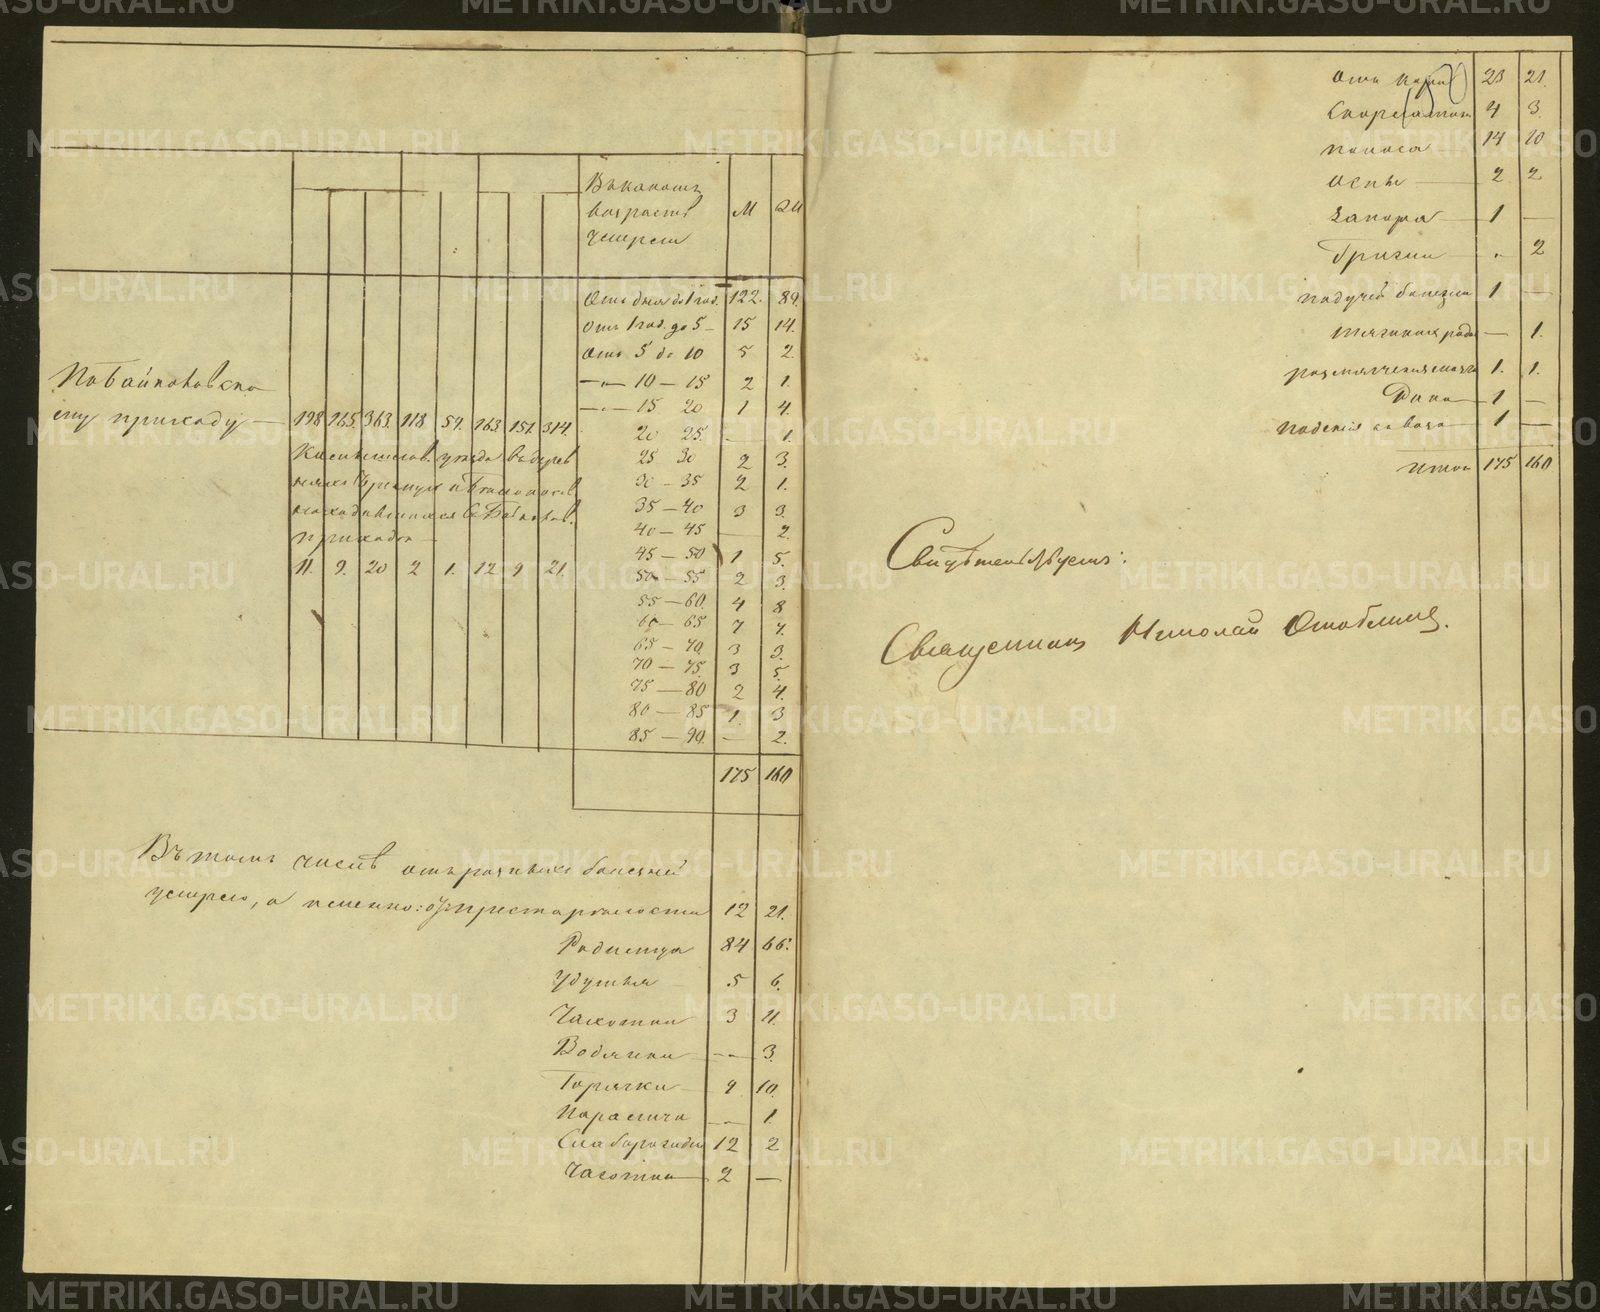 Въ какомъ
возрастѣ М Ж
умерли
Отъ дня до 1 год. 122. 89.
Отъ 1 год. до 5 – 15 14.
Отъ 5 до 10 5 2.
—„— 10 — 15 2 1.
—„— 15 20 1 4.
20 25. — 1.
25 30 2 3.
30 — 35 2 1.
35 — 40 3 3.
40 — 45 — 2.
45 — 50 1 5.
50 — 55 2 3.
55 — 60. 4 8
60 — 65 7 7.
65 — 70. 3 3.
70 — 75. 3 5.
75 — 80 2 4.
80 — 85 1. 3
85 — 90. — 2.
175 160
По Байновско
му приходу — 198 165. 363. 118 59. 163. 151. 314.
Камышлов. уѣзда въ дерев
находившихся въ Байновск.
приходѣ —
11. 9. 20 2 1. 12 9 21.
Въ томъ числѣ отъ разныхъ болѣзней
умерло, а именно: отъ престарѣлости 12 21.
Родимца 84 66.
Удушья 5 6.
Чахотки 3 11.
Водянки —„— 3.
Горячки 9 10.
Паралича —„— 1.
Слаборожден 12 2
Чахотки 2 —
Отъ кори 23 21.
Скарлатины 4 3.
Поноса 14 10
Оспы 2 2
Запора 1 —
Грыжи „ 2
падучей болезни 1 —
1.
размягченія мозга 1. 1.
1 —
паденія съ воза 1 —
Итого 175 160
Свидѣтельствуетъ:
Священникъ Николай
METRIKI.GASO-URAL.RU